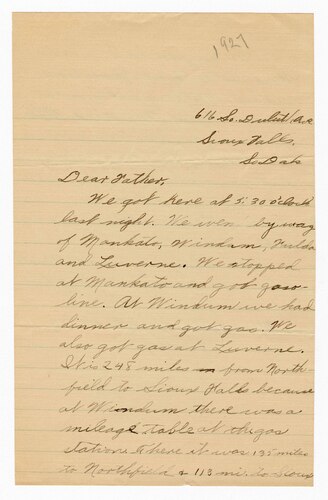 1927
616 So. Duluth Ave
Sioux Falls,
So Dak
Dear Father,
We got here at 5:30 o'clock
last night. We went by way
of Mankato, Windum, Fulda
and Luverne. We stopped
at Mankato and got gaso-
line. At Windum we had
dinner and got gas. We
also got gas at Luverne.
It is 248 miles from North-
field to Sioux Falls because
at Windum there was a
mileage table at the gas
station where it was 135 miles
to Northfield & 113 mi. to Sioux